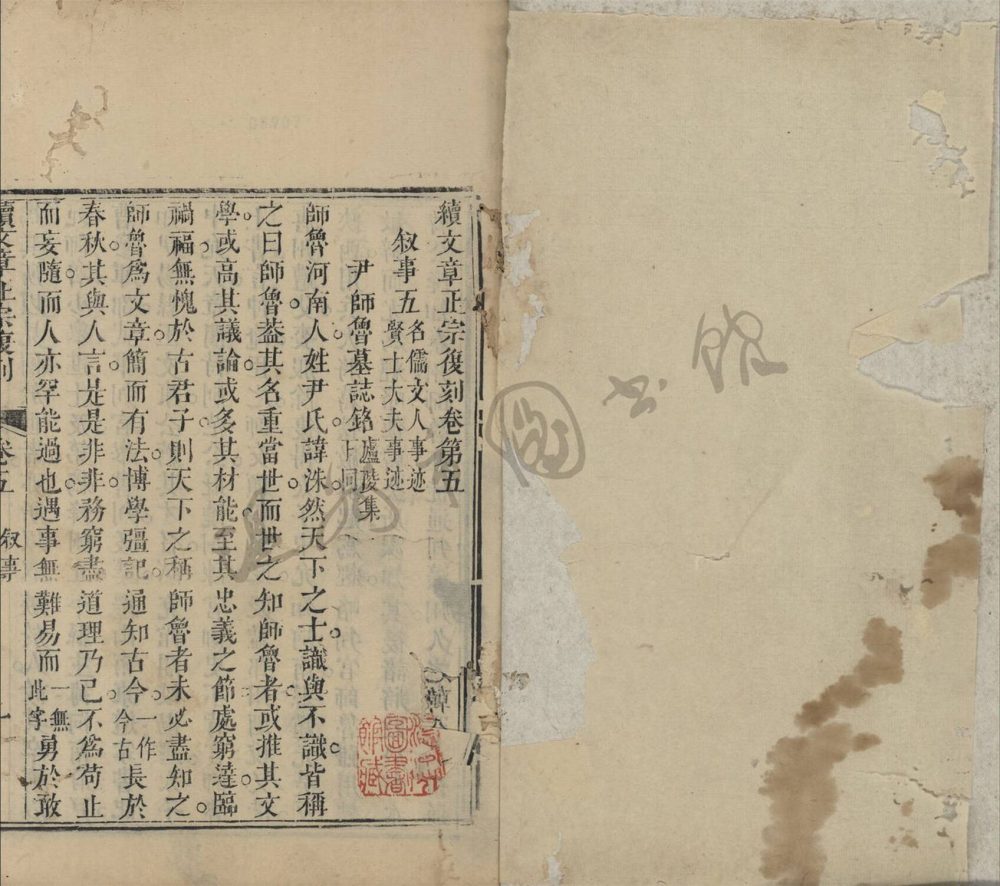 續文章正宗復刻卷第五
叙事五 名儒文人事迹 賢士大夫事迹
尹師魯墓誌銘 廬陵集下同
師魯河南人姓尹氏諱洙然天下之士識與不識皆稱
之曰師魯葢其名重當世而世之知師魯者或推其文
學或高其議論或多其材能至其忠義之節處窮達臨
禍福無愧於古君子則天下之稱師魯者未必盡知之
師魯爲文章簡而有法博學彊記通知古今一作今古長於
春秋其與人言是是非非務窮盡道理乃已不爲苟止
而妄隨而人亦罕能過也遇事無難易而一無此字勇於敢
續文章正宗復刻 卷五 叙事 一
圖書館藏
圖書館